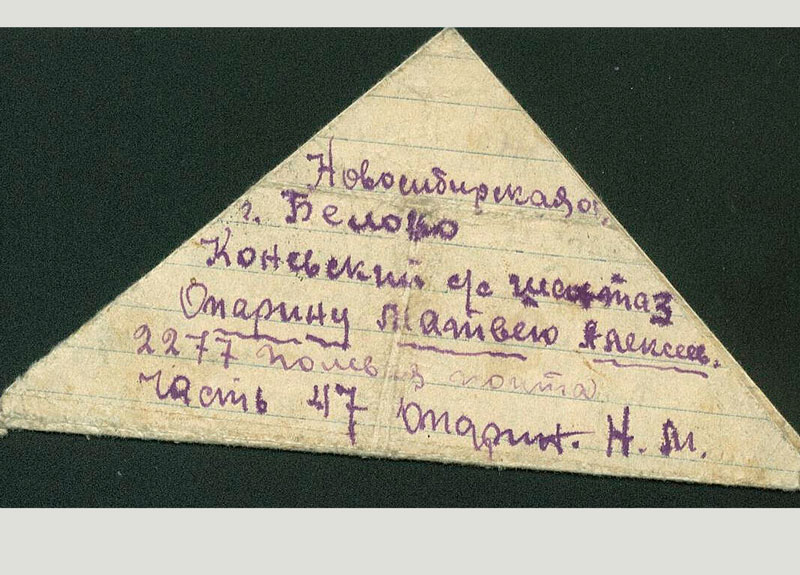 Новосибирская о.
г. Белово
Коневский с/с шахта 3
Опарину Матвею Алексеев.
2277 полевая почта
часть 47 Опарин. Н. М.